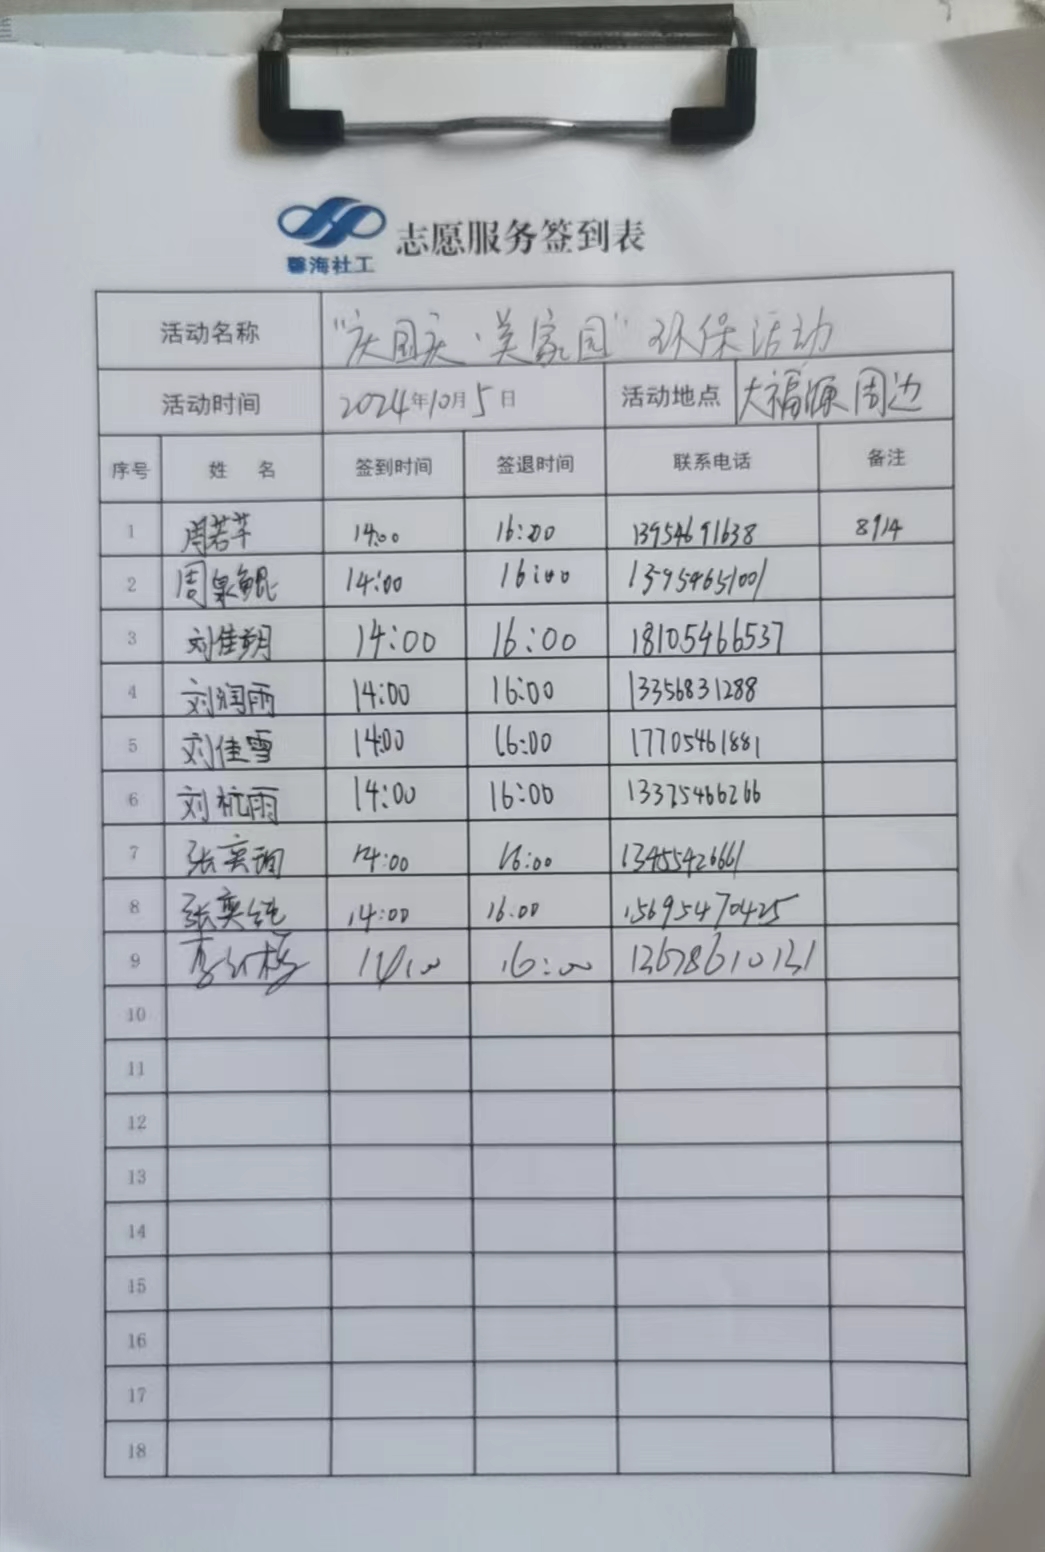 馨海社工
志愿服务签到表
活动名称 "庆国庆·美家园"环保活动
活动时间 2024年10月5日 活动地点 大福源周边
序号 姓 名 签到时间 签退时间 联系电话 备注
1 周若芊 14:00 16:00 13954691638 8914
2 周泉鲲 14:00 16:00
3 刘佳朔 14:00 16:00 18105466537
4 刘润雨 14:00 16:00 13356831288
5 刘佳雪 14:00 16:00 17705461881
6 刘杭雨 14:00 16:00 13325466266
7 张奕珣 14:00 16:00 13455426661
8 张奕纯 14:00 16:00 15695470425
9 14:00 16:00
10
11
12
13
14
15
16
17
18